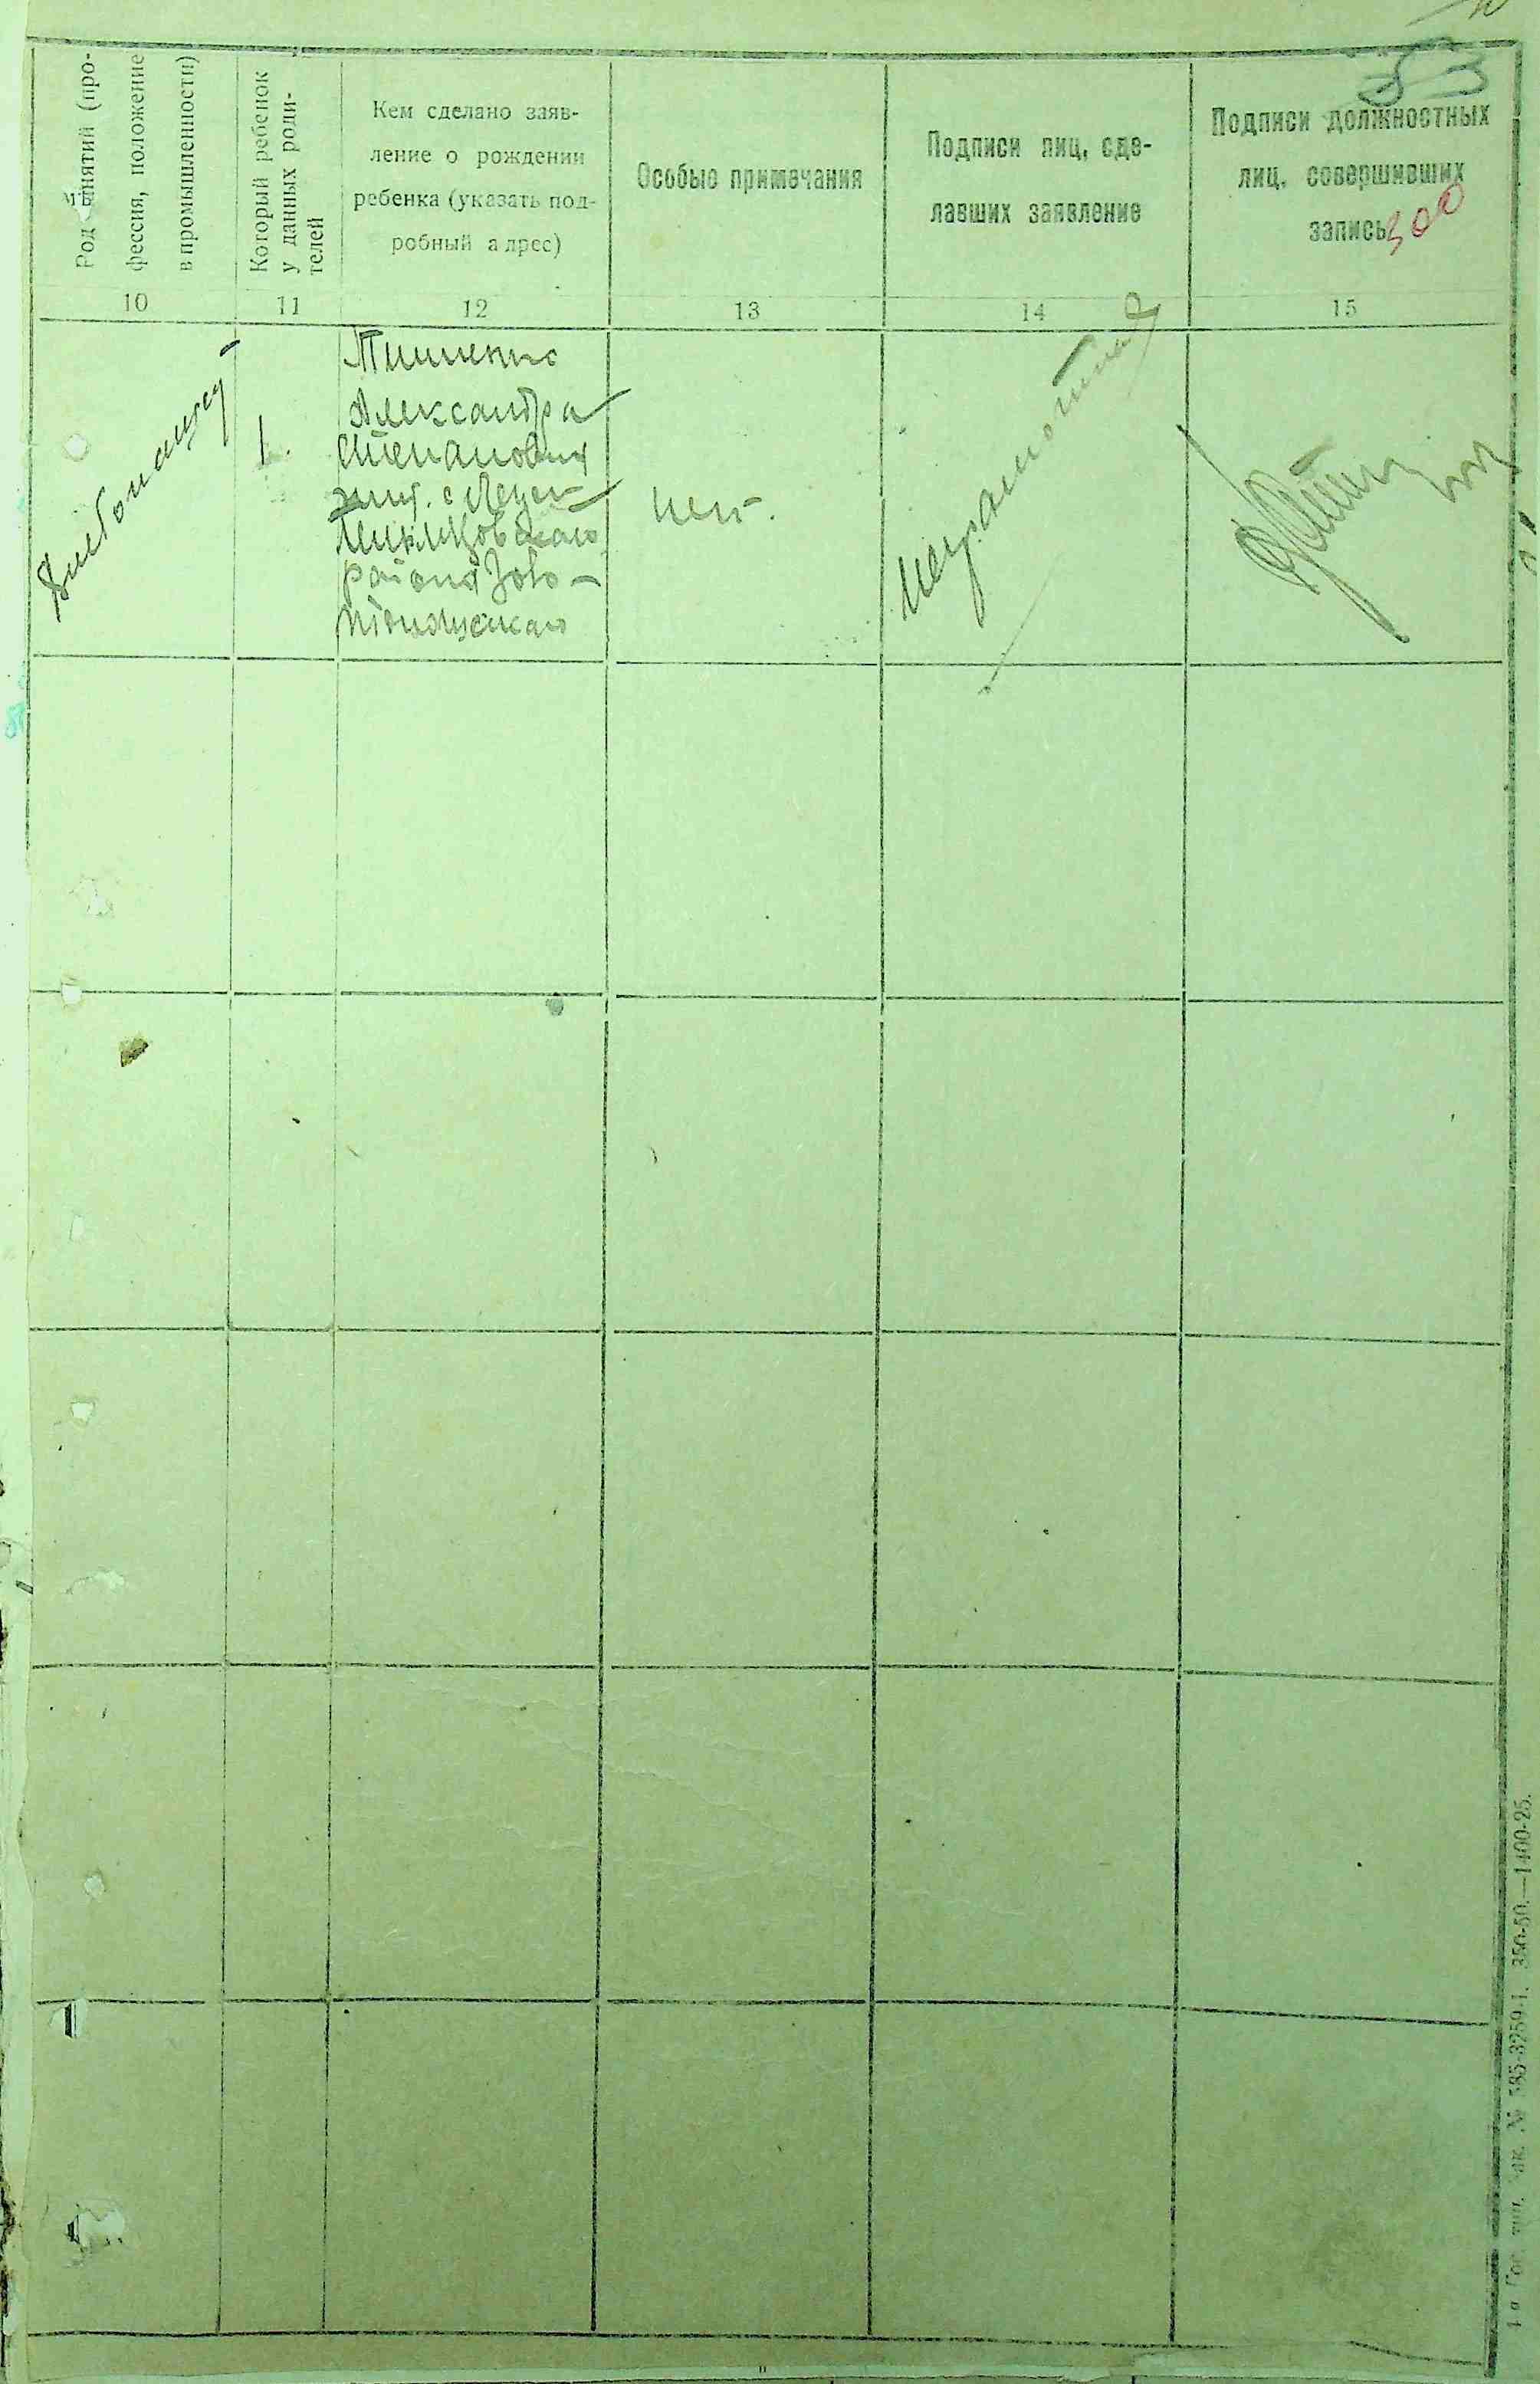 53
Род занятий (про-
фессия, положение
в промышленности)
Который ребенок
у данных роди-
телей
Кем сделано заяв-
ление о рождении
ребенка (указать под-
робный адрес)
Особые примечания
Подписи лиц, сде-
лавших заявление
Подписи должностных
лиц, совершивших
запись
300
10
11
12
13
14
15
Хлебопашец
1.
Тишенко
Александра
Степановна
района
нет.
неграмотная
№ 385-3259-1. 350-50.—1400-25.